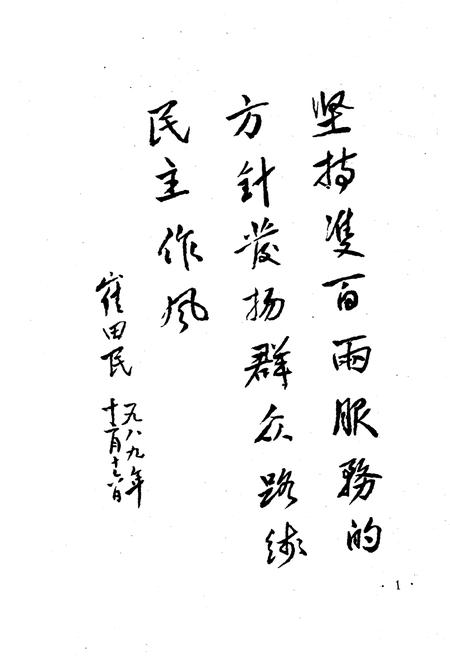 坚持双百两服務的
方針发扬群众路线
民主作风
崔田民
一九八九年
十一月十六日
·1·